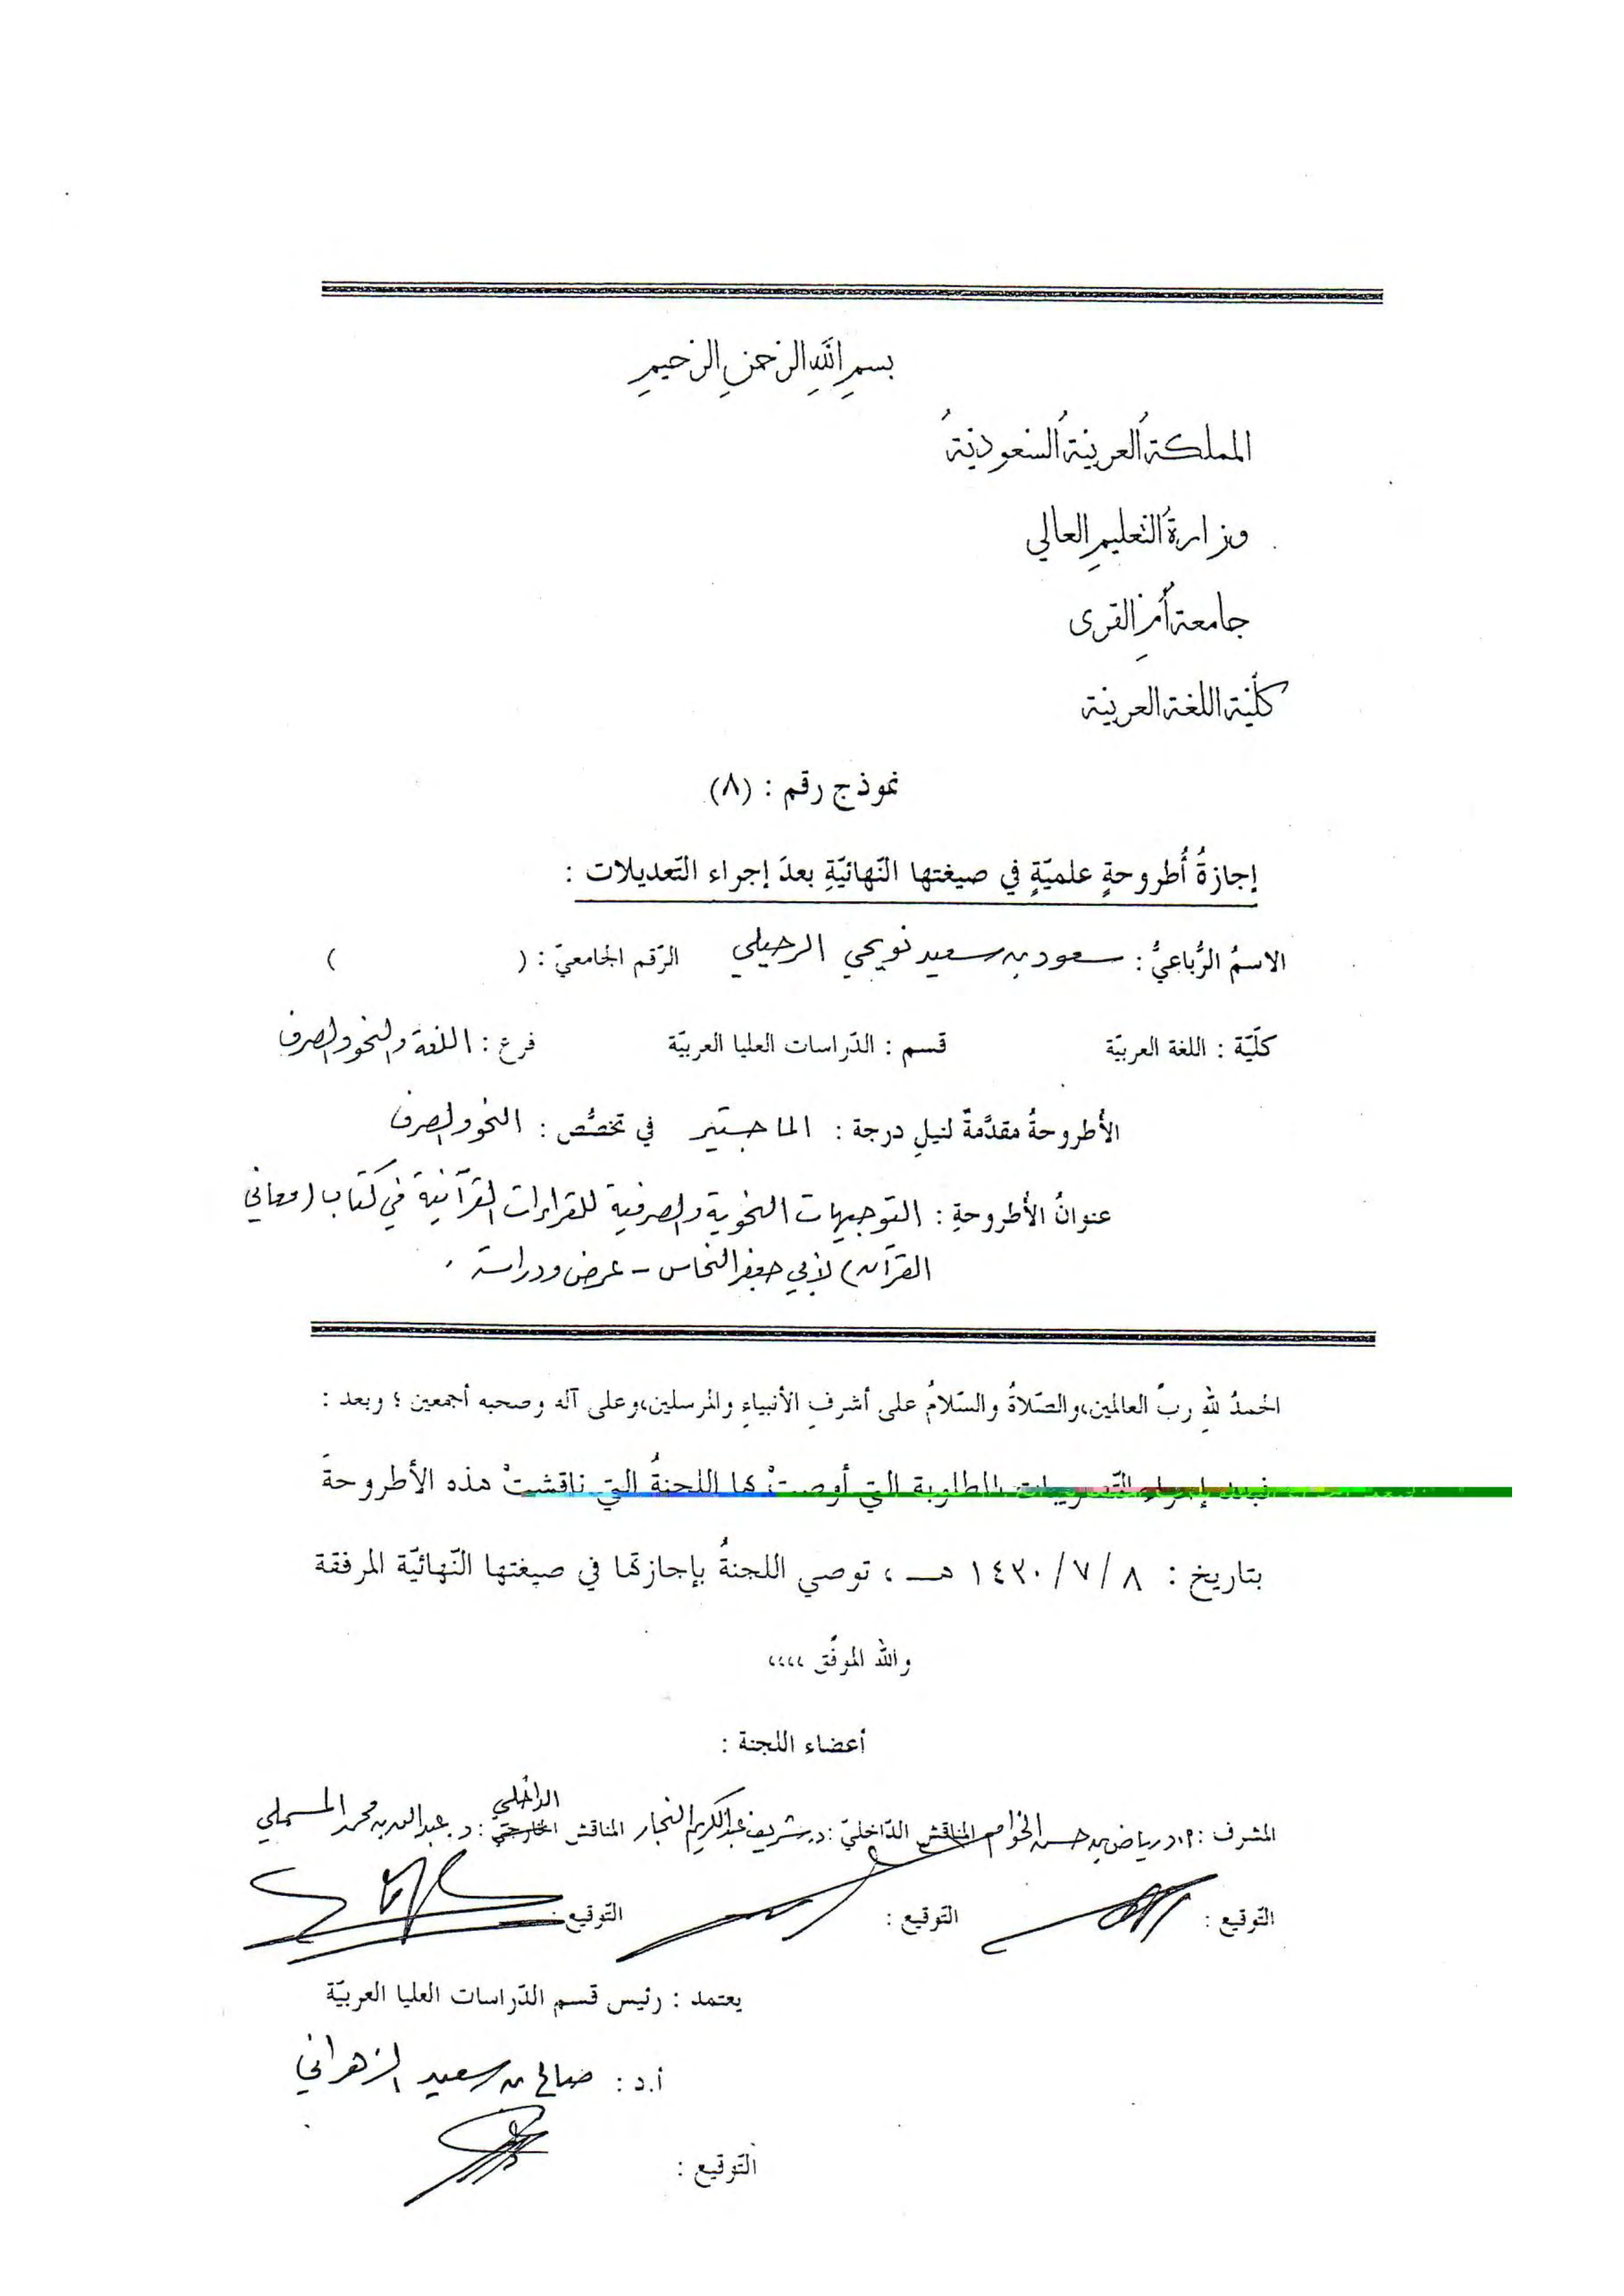 بسم الله الرحمن الرحيم
المملكةُ العربيةُ السعوديةُ
وزارةُ التعليمِ العالي
جامعة أُمِّ القرى
كلّية اللغة العربية
نموذج رقم : (٨)
إجازةُ أُطروحةٍ علميّةٍ في صيغتها النّهائيّةِ بعدَ إجراء التّعديلات :
الاسمُ الرُّباعيُّ : سعود بن سعيد نويحي الرحيلي الرّقم الجامعيّ : ( )
كلّيّة : اللغة العربيّة قسم : الدّراسات العليا العربيّة فرع : اللغة والنحو والصرف
الأُطروحةُ مقدَّمةٌ لنيلِ درجة : الماجستير في تخصُّص : النحو والصرف
عنوانُ الأُطروحةِ : التوجيهات النحوية والصرفية للقراءات القرآنية في كتاب (معاني
القرآن) لأبي جعفر النحاس – عرض ودراسة .
الحمدُ للهِ ربِّ العالمين،والصّلاةُ والسّلامُ على أشرفِ الأنبياءِ والمرسلين،وعلى آله وصحبه أجمعين ؛ وبعد :
فبعد إجراء التّصويبات المطلوبة التي أوصتْ بها اللجنةُ التي ناقشتْ هذه الأطروحةَ
بتاريخ : ٨ /٧ /١٤٣٠ هـــ ، توصي اللجنةُ بإجازتها في صيغتها النّهائيّة المرفقة
والله الموفّق ،،،،
أعضاء اللجنة :
الداخلي
المشرف : أ.د رياض بن حسن الخوام المناقش الدّاخليّ : د. شريف عبدالكريم النجار المناقش الخارجيّ : د. عبدالله بن محمد المسملي
التّوقيع : التّوقيع : التّوقيع :
يعتمد : رئيس قسم الدّراسات العليا العربيّة
أ.د : صالح بن سعيد الزهراني
التّوقيع :